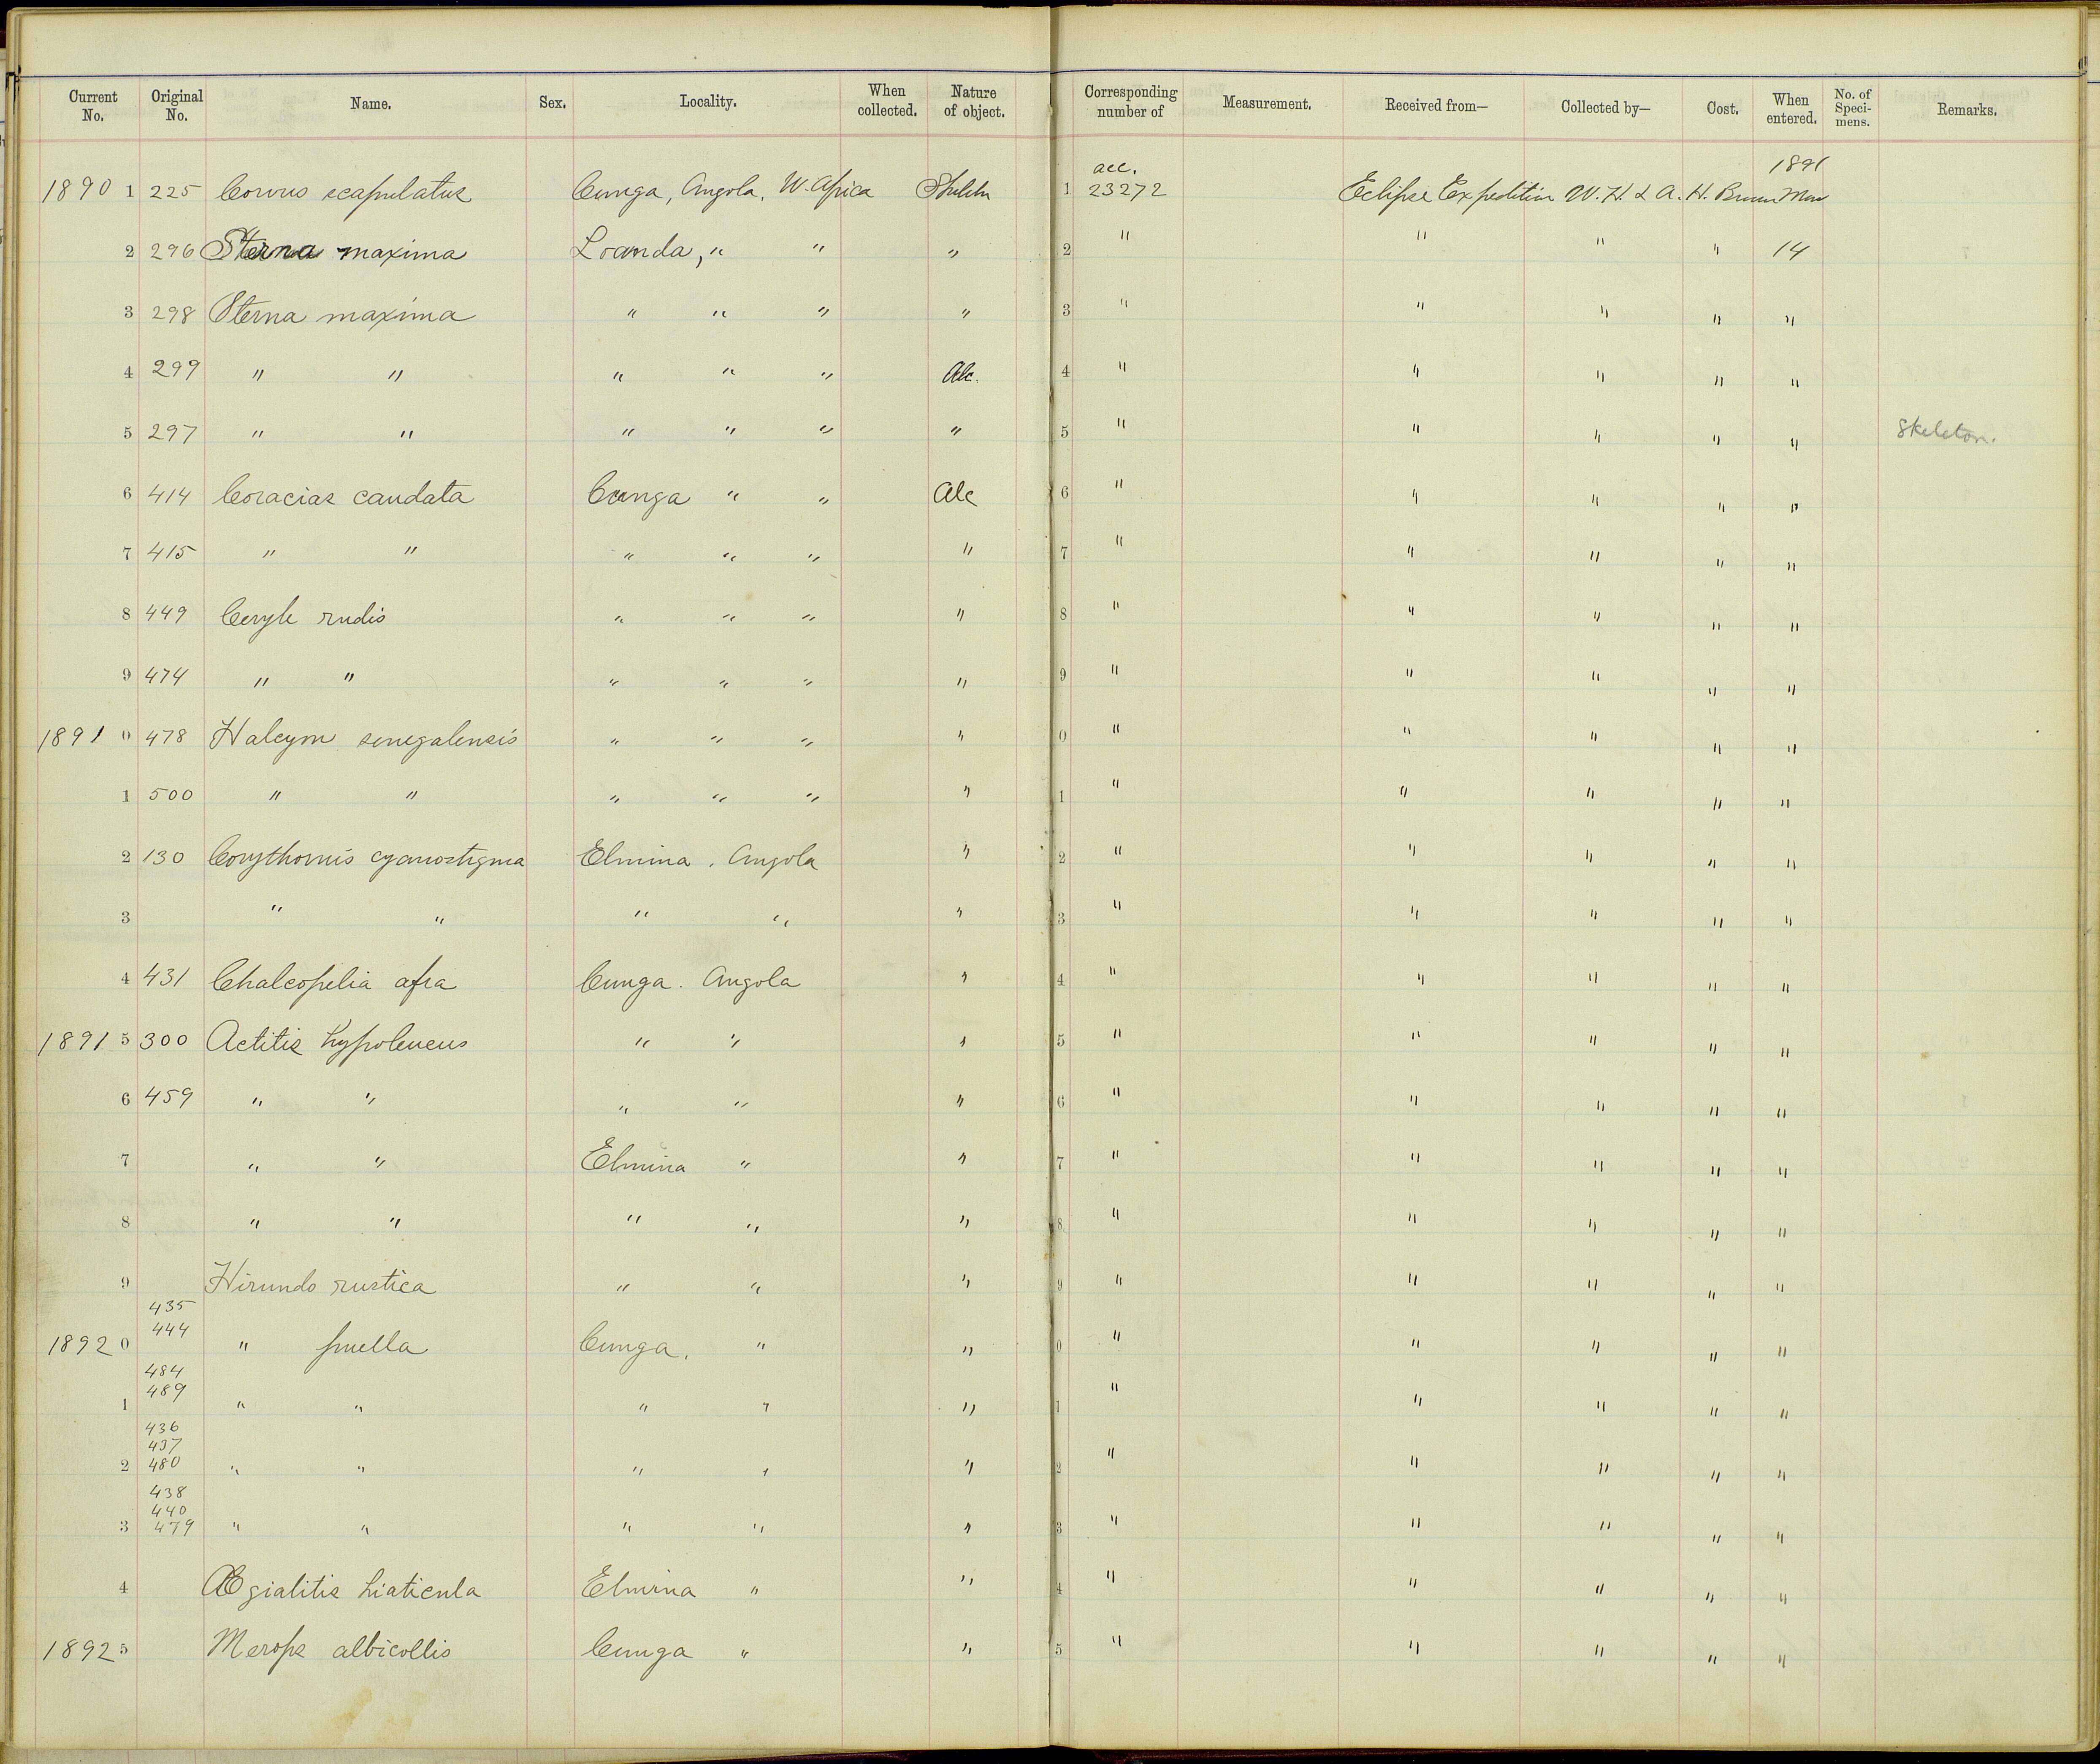 Current No. Original No. Name. Sex. Locality. When collected. Nature of object. Corresponding number of Measurement. Received from— Collected by— Cost. When entered. No. of Speci-mens. Remarks.
1890 1 225 Corvus scapulatus Cunga, Angola, W. Africa 1 acc. 23272 Eclipse Expedition W. H. & A. H. Brown 1891
2 296 Sterna maxima Loanda, " " " 2 " " " " 14
3 298 Sterna maxima " " " " 3 " " " " "
4 299 " " " " " Alc. 4 " " " " "
5 297 " " " " " " 5 " " " " " Skeleton.
6 414 Coracias caudata Cunga " " Alc 6 " " " " "
7 415 " " " " " " 7 " " " " "
8 449 Ceryle rudis " " " " 8 " " " " "
9 474 " " " " " " 9 " " " " "
1891 0 478 Halcyon senegalensis " " " " 0 " " " " "
1 500 " " " " " " 1 " " " " "
2 130 Corythornis cyanostigma Elmina, Angola " 2 " " " " "
3 " " " " " 3 " " " " "
4 431 Chalcopelia afra Cunga. Angola " 4 " " " " "
1891 5 300 Actitis hypoleucus " " " 5 " " " " "
6 459 " " " " " 6 " " " " "
7 " " Elmina " " 7 " " " " "
8 " " " " " 8 " " " " "
9 Hirundo rustica " " " 9 " " " " "
1892 0 435 444 " puella Cunga. " " 0 " " " " "
1 484 489 " " " " " 1 " " " " "
2 436 437 480 " " " " " 2 " " " " "
3 438 440 479 " " " " " 3 " " " " "
4 Ægialitis hiaticula Elmina " " 4 " " " " "
1892 5 Merops albicollis Cunga " " 5 " " " " "